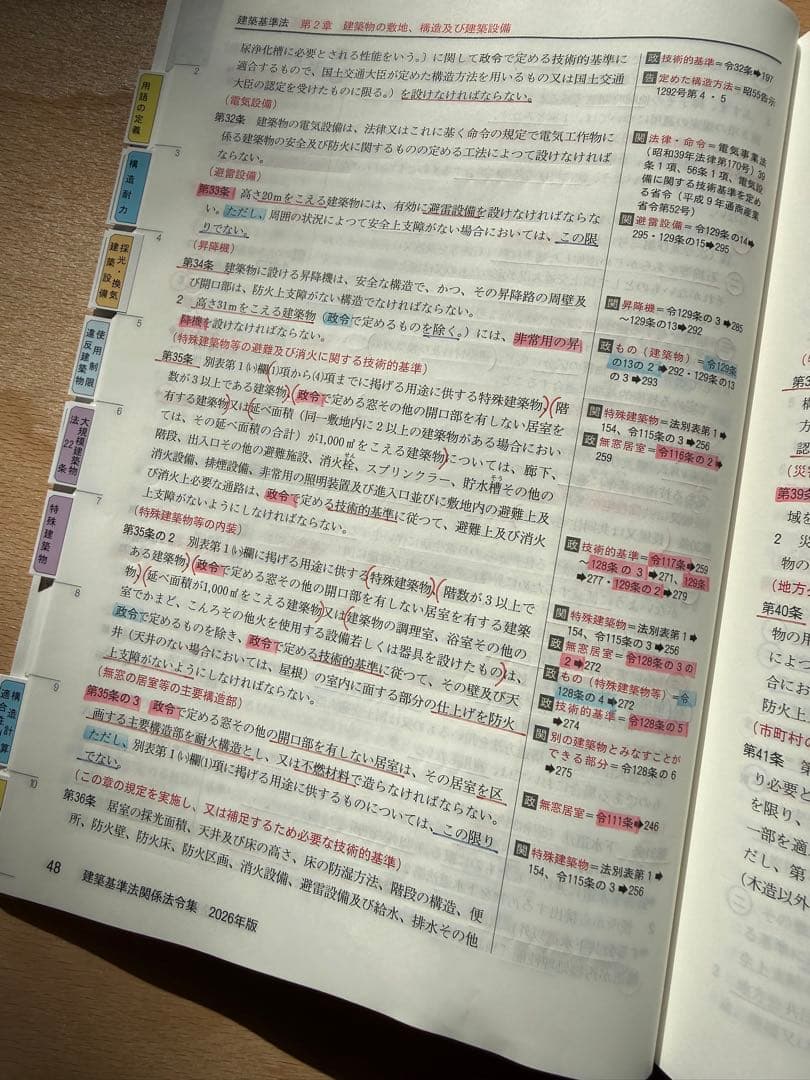 建築基準法 第2章 建築物の敷地、構造及び建築設備
尿浄化槽に必要とされる性能をいう。)に関して政令で定める技術的基準に
適合するもので、国土交通大臣が定めた構造方法を用いるもの又は国土交通
大臣の認定を受けたものに限る。)を設けなければならない。
(電気設備)
第32条 建築物の電気設備は、法律又はこれに基く命令の規定で電気工作物に
係る建築物の安全及び防火に関するものの定める工法によつて設けなければ
ならない。
(避雷設備)
第33条 高さ20mをこえる建築物には、有効に避雷設備を設けなければならな
い。ただし、周囲の状況によつて安全上支障がない場合においては、この限
りでない。
(昇降機)
第34条 建築物に設ける昇降機は、安全な構造で、かつ、その昇降路の周壁及
び開口部は、防火上支障がない構造でなければならない。
2 高さ31mをこえる建築物(政令で定めるものを除く。)には、非常用の昇
降機を設けなければならない。
(特殊建築物等の避難及び消火に関する技術的基準)
第35条 別表第1(い)欄(1)項から(4)項までに掲げる用途に供する特殊建築物、階
数が3以上である建築物、政令で定める窓その他の開口部を有しない居室を
有する建築物又は延べ面積(同一敷地内に2以上の建築物がある場合におい
ては、その延べ面積の合計)が1,000㎡をこえる建築物については、廊下、
階段、出入口その他の避難施設、消火栓、スプリンクラー、貯水槽その他の
消火設備、排煙設備、非常用の照明装置及び進入口並びに敷地内の避難上及
び消火上必要な通路は、政令で定める技術的基準に従つて、避難上及び消火
上支障がないようにしなければならない。
(特殊建築物等の内装)
第35条の2 別表第1(い)欄に掲げる用途に供する特殊建築物、階数が3以上で
ある建築物、政令で定める窓その他の開口部を有しない居室を有する建築
物、延べ面積が1,000㎡をこえる建築物又は建築物の調理室、浴室その他の
室でかまど、こんろその他火を使用する設備若しくは器具を設けたものは、
政令で定めるものを除き、政令で定める技術的基準に従つて、その壁及び天
井(天井のない場合においては、屋根)の室内に面する部分の仕上げを防火
上支障がないようにしなければならない。
(無窓の居室等の主要構造部)
第35条の3 政令で定める窓その他の開口部を有しない居室は、その居室を区
画する主要構造部を耐火構造とし、又は不燃材料で造らなければならない。
ただし、別表第1(い)欄(1)項に掲げる用途に供するものについては、この限り
でない。
(この章の規定を実施し、又は補足するため必要な技術的基準)
第36条 居室の採光面積、天井及び床の高さ、床の防湿方法、階段の構造、便
所、防火壁、防火床、防火区画、消火設備、避雷設備及び給水、排水その他
48 建築基準法関係法令集 2026年版
政 技術的基準=令32条➡197
告 定めた構造方法=昭55告示
1292号第4・5
関 法律・命令=電気事業法
(昭和39年法律第170号)39
条1項、56条1項、電気設
備に関する技術基準を定め
る省令(平成9年通商産業
省令第52号)
関 避雷設備=令129条の14➡
295・129条の15➡295
関 昇降機=令129条の3➡285
~129条の13➡292
政 もの(建築物)=令129条
の13の2➡292・129条の13
の3➡293
関 特殊建築物=法別表第1➡
154、令115条の3➡256
政 無窓居室=令116条の2➡
259
政 技術的基準=令117条➡259
~128条の3➡271、129条
➡277・129条の2➡279
関 特殊建築物=法別表第1➡
154、令115条の3➡256
政 無窓居室=令128条の3の
2➡272
政 もの(特殊建築物等)=令
128条の4➡272
政 技術的基準=令128条の5
➡274
関 別の建築物とみなすことが
できる部分=令128条の6
➡275
政 無窓居室=令111条➡246
関 特殊建築物=法別表第1➡
154、令115条の3➡256
2
用語の定義
3
構造耐力
4
採光・換気
建築設備
5
使用制限
違反建築物
6
大規模建築物
法22条
7
特殊建築物
8
9
構造計算
適合性
10
第39条
域を
2 災
物の
第40条
物の用
によによ
防火上
(市町村の
第41条
り必要と
を限り、
一部を適
だし、第
(木造以外